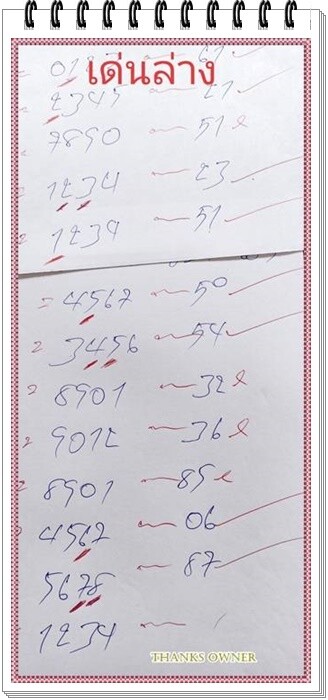 เด่นล่าง
7890 51
1234 23
1234 51
= 4567 50
2 3456 54
2 8901 32
2 9012 36
2 8901 89
4567 06
5678 87
1234
THANKS OWNER